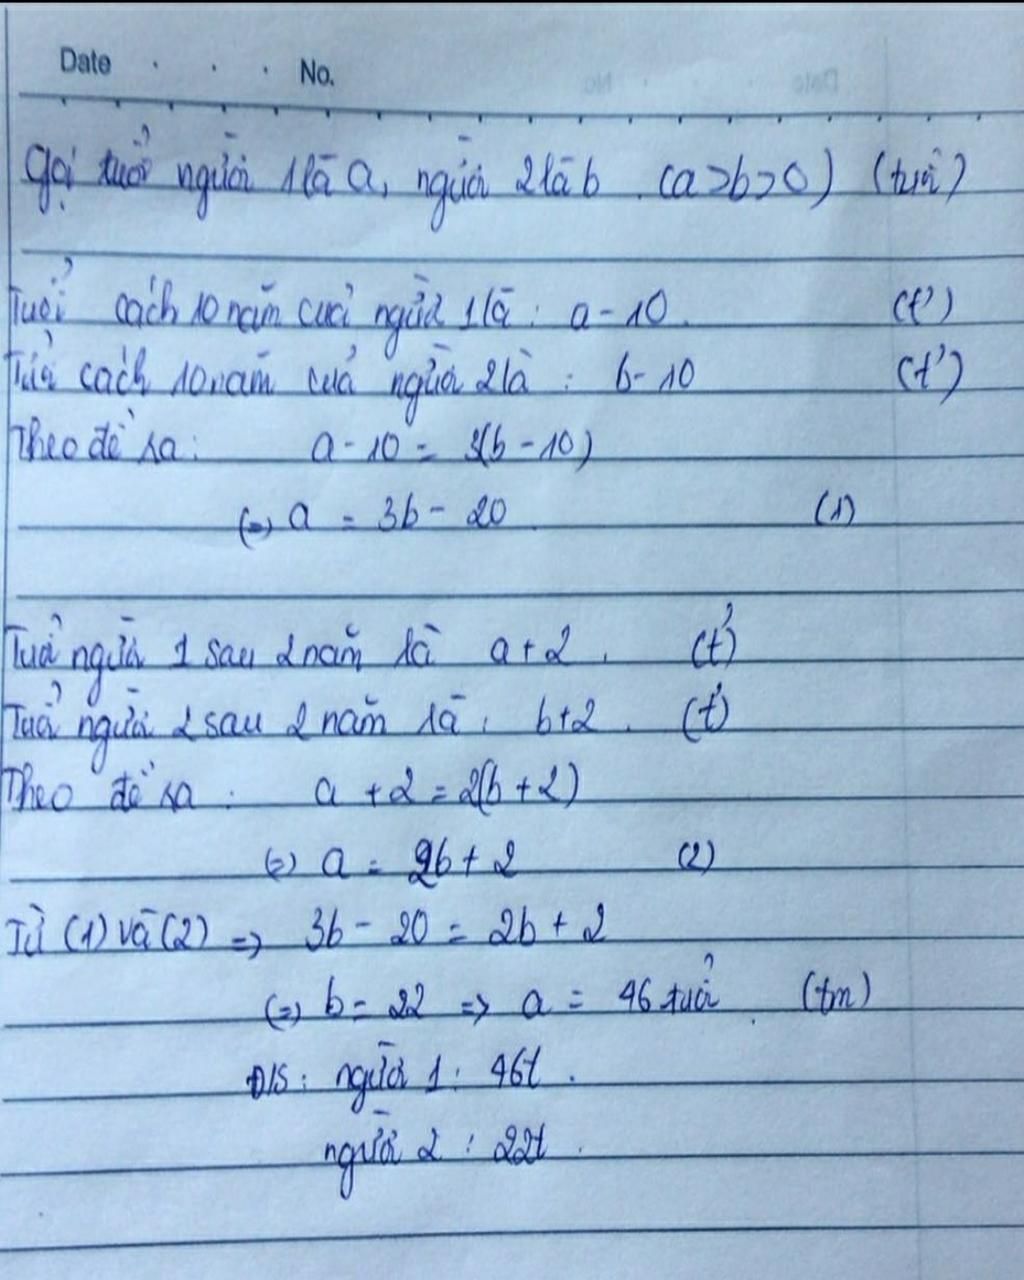 Date . . . No.
Gọi tuổi người 1 là a, người 2 là b. (a>b>0) (tuổi)
Tuổi cách 10 năm của người 1 là: a - 10. (t')
Tuổi cách 10 năm của người 2 là: b - 10 (t')
Theo đề ra: a - 10 = 3(b - 10)
(=) a = 3b - 20 (1)
Tuổi người 1 sau 2 năm là a + 2. (t')
Tuổi người 2 sau 2 năm là: b+2. (t')
Theo đề ra: a + 2 = 2(b + 2)
(=) a = 2b + 2 (2)
Từ (1) và (2) => 3b - 20 = 2b + 2
(=) b = 22 => a = 46 tuổi (tm)
Đ/S: người 1: 46t.
người 2: 22t.